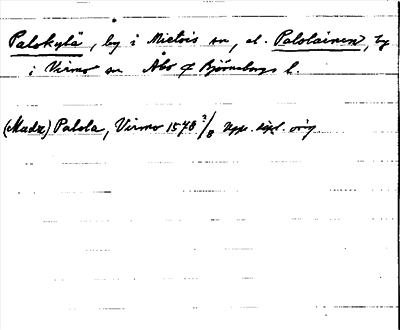 Palokylä, by i Mietois sn, el. Palolainen, by
i Virmo sn Åbo & Björneborgs l.
(Madz) Palola, Virmo 1578 2/8 Upps. dipl. orig